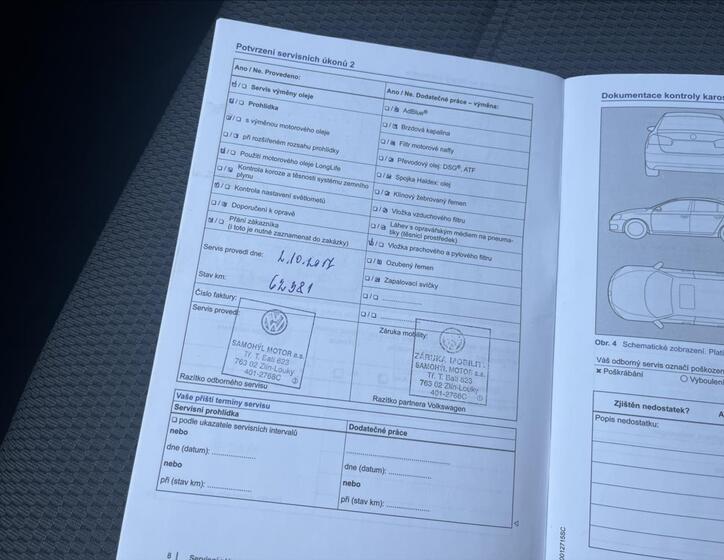 Potvrzení servisních úkonů 2
Ano / Ne. Provedeno:
Servis výměny oleje
Prohlídka
s výměnou motorového oleje
při rozšířeném rozsahu prohlídky
Použití motorového oleje LongLife
Kontrola koroze a těsnosti systému zemního
plynu
Kontrola nastavení světlometů
Doporučení k opravě
Přání zákazníka
(i toto je nutné zaznamenat do zakázky)
Servis provedl dne: 2.10.2017
Stav km: 62381
Číslo faktury:
Servis provedl:
SAMOHÝL MOTOR a.s.
Tř. T. Bati 623
763 02 Zlín-Louky
401-2768C
Razítko odborného servisu
Ano / Ne. Dodatečné práce – výměna:
AdBlue®
Brzdová kapalina
Filtr motorové nafty
Převodový olej: DSG®, ATF
Spojka Haldex: olej
Klínový žebrovaný řemen
Vložka vzduchového filtru
Láhev s opravářským médiem na pneuma-
tiky (těsnicí prostředek)
Vložka prachového a pylového filtru
Ozubený řemen
Zapalovací svíčky
Záruka mobility:
ZÁRUKA MOBILITY
SAMOHÝL MOTOR a.s.
Tř. T. Bati 623
763 02 Zlín-Louky
401-2768C
Razítko partnera Volkswagen
Vaše příští termíny servisu
Servisní prohlídka
podle ukazatele servisních intervalů
nebo
dne (datum):
nebo
při (stav km):
Dodatečné práce
dne (datum):
nebo
při (stav km):
Dokumentace kontroly karos
Obr. 4 Schematické zobrazení. Plat
Váš odborný servis označí poškozen
Poškrábání
Vyboulen
Zjištěn nedostatek?
Popis nedostatku: